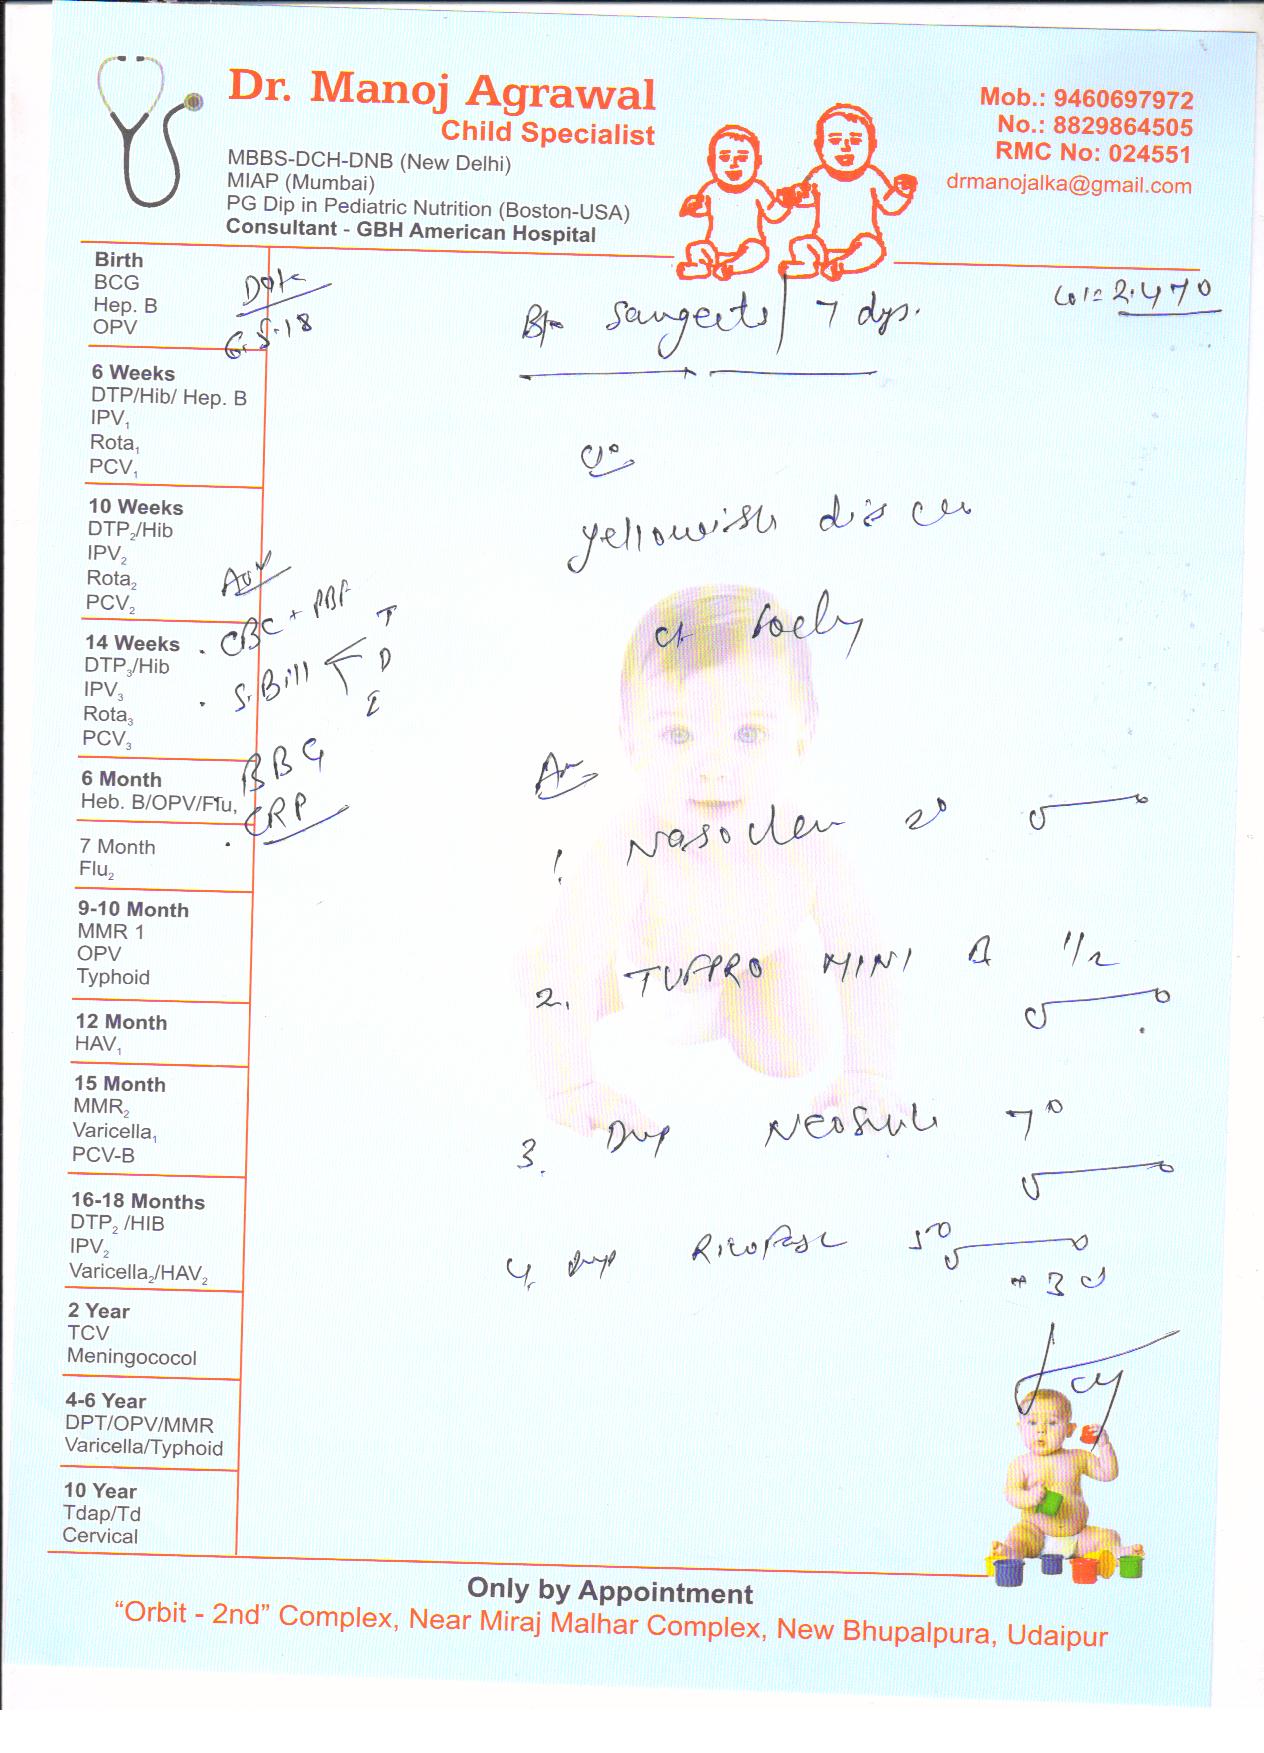 Dr. Manoj Agrawal
Child Specialist
MBBS-DCH-DNB (New Delhi)
MIAP (Mumbai)
PG Dip in Pediatric Nutrition (Boston-USA)
Consultant - GBH American Hospital
Mob.: 9460697972
No.: 8829864505
RMC No: 024551
drmanojalka@gmail.com
Birth
BCG
Hep. B
OPV
6 Weeks
DTP/Hib/ Hep. B
IPV1
Rota1
PCV1
10 Weeks
DTP2/Hib
IPV2
Rota2
PCV2
14 Weeks
DTP3/Hib
IPV3
Rota3
PCV3
6 Month
Heb. B/OPV/Flu,
7 Month
Flu2
9-10 Month
MMR 1
OPV
Typhoid
12 Month
HAV1
15 Month
MMR2
Varicella1
PCV-B
16-18 Months
DTP2 /HIB
IPV2
Varicella2/HAV2
2 Year
TCV
Meningococol
4-6 Year
DPT/OPV/MMR
Varicella/Typhoid
10 Year
Tdap/Td
Cervical
6.5.18
CBC + PBF
S. Bill T
D
I
BBG
CRP
B/o Sangeeta / 7 dys.
2.470
Yellowish dis
1. Nasoclear 2°
2. TUFPRO MINI 1/2
3. NEOSULE 7°
4.
Only by Appointment
“Orbit - 2nd” Complex, Near Miraj Malhar Complex, New Bhupalpura, Udaipur